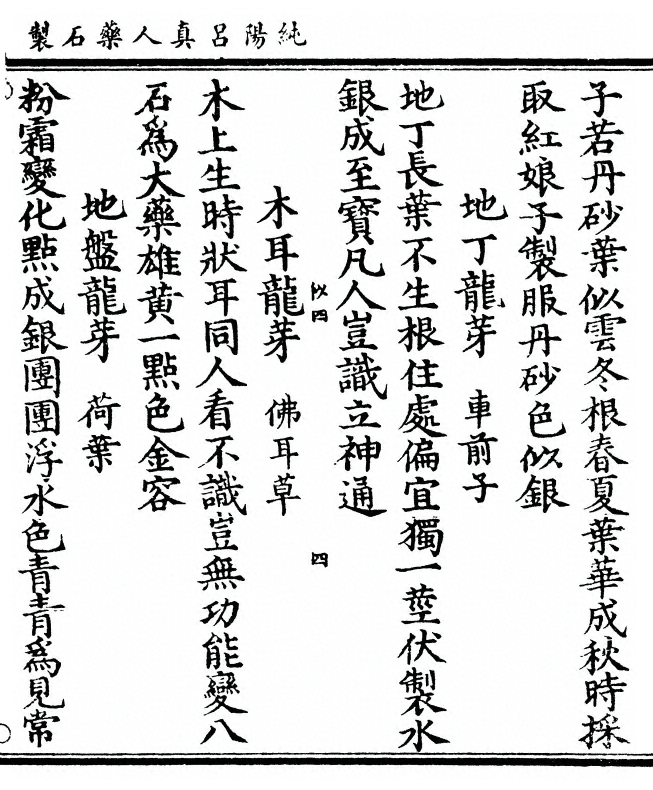 純陽呂真人藥石製
子若丹砂葉似雲冬根春夏葉華成秋時採
取紅娘子製服丹砂色似銀
地丁龍芽 車前子
地丁長葉不生根住處偏宜獨一莖伏製水
銀成至寶凡人豈識立神通
似四 四
木耳龍芽 佛耳草
木上生時狀耳同人看不識豈無功能變八
石爲大藥雄黃一點色金容
地盤龍芽 荷葉
粉霜變化點成銀團團浮水色青青爲見常